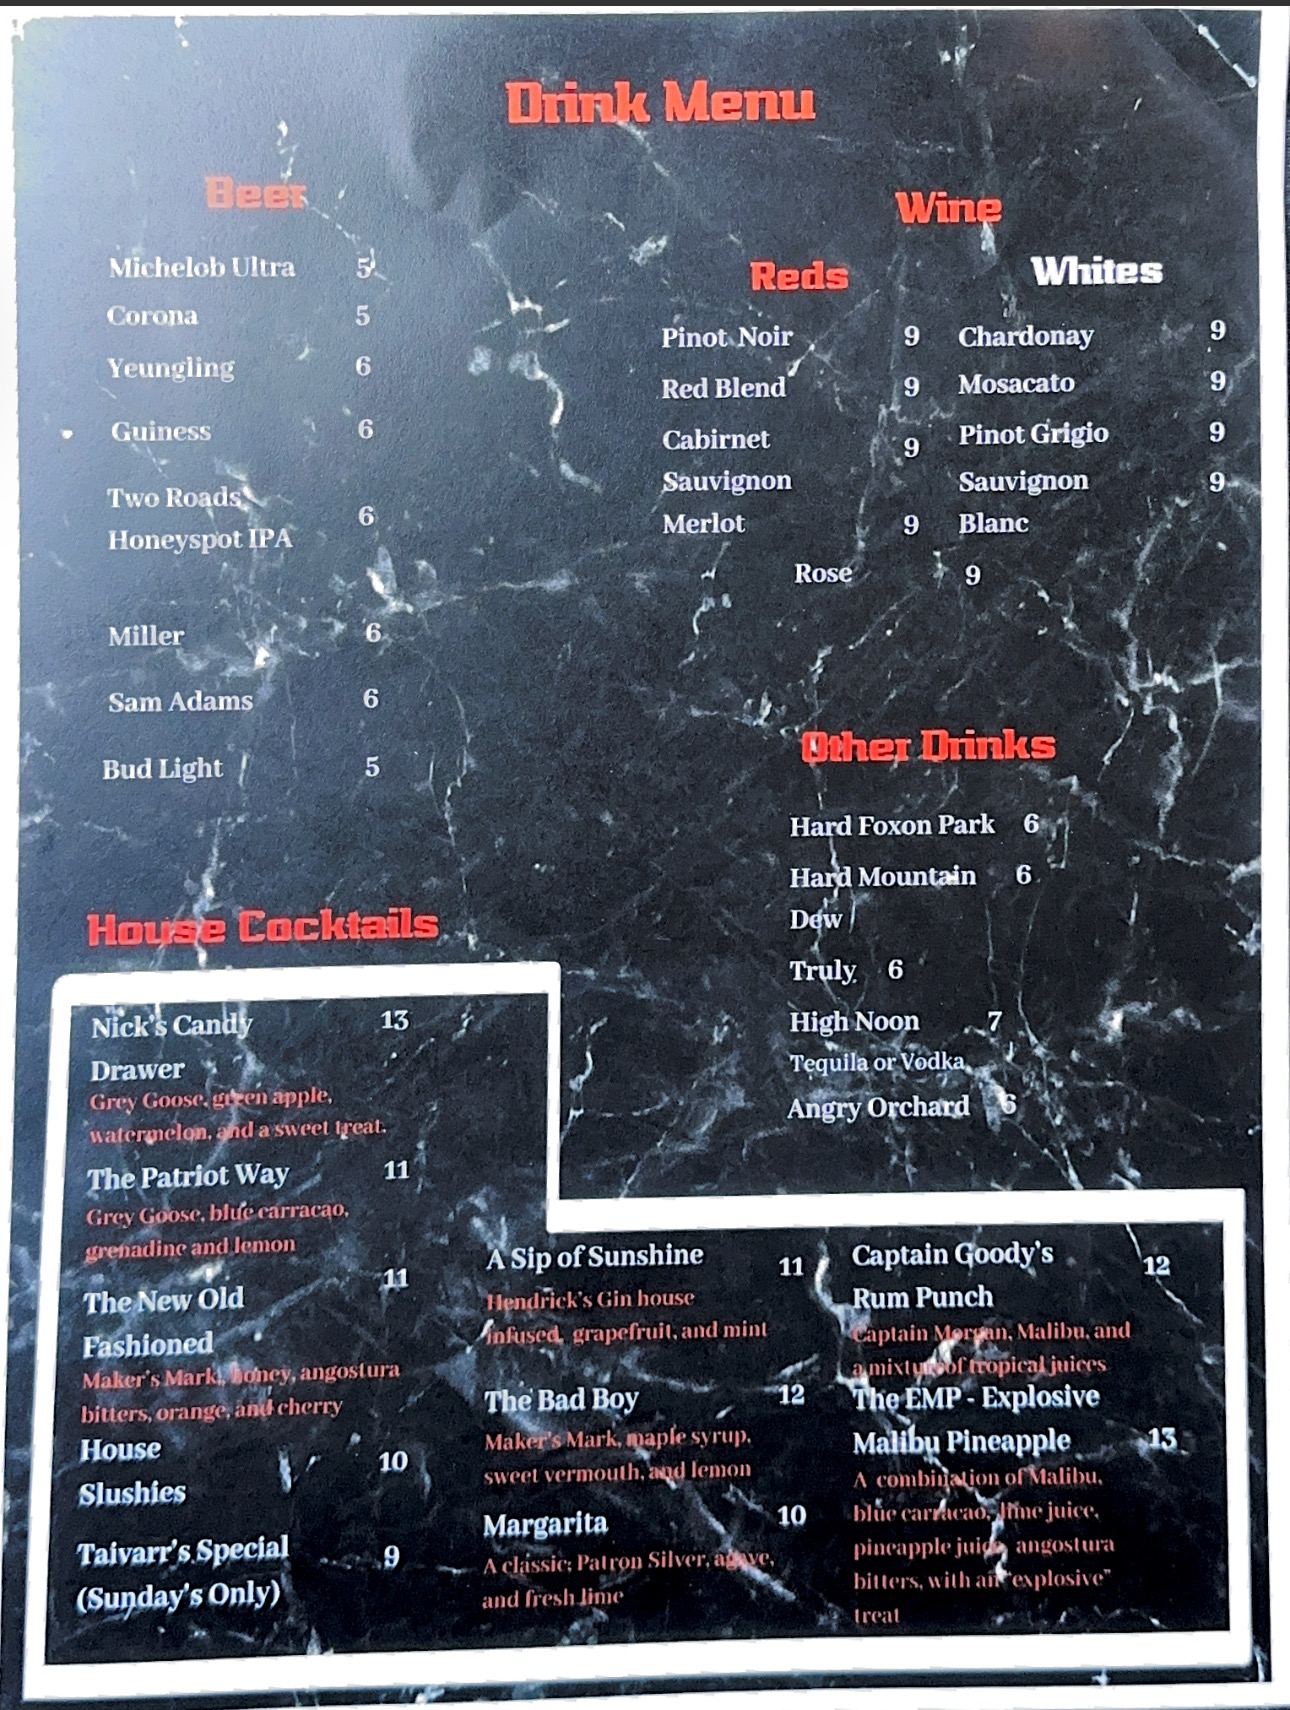 Drink Menu
Beer
Michelob Ultra 5
Corona 5
Yeungling 6
Guiness 6
Two Roads
Honeyspot IPA 6
Miller 6
Sam Adams 6
Bud Light 5
Wine
Reds
Pinot Noir 9
Red Blend 9
Cabirnet 9
Sauvignon
Merlot 9
Whites
Chardonay 9
Mosacato 9
Pinot Grigio 9
Sauvignon 9
Blanc
Rose 9
Other Drinks
Hard Foxon Park 6
Hard Mountain 6
Dew
Truly 6
High Noon 7
Tequila or Vodka
Angry Orchard 6
House Cocktails
Nick's Candy 13
Drawer
Grey Goose, green apple,
watermelon, and a sweet treat.
The Patriot Way 11
Grey Goose, blue carracao,
grenadine and lemon
The New Old 11
Fashioned
Maker's Mark, honey, angostura
bitters, orange, and cherry
House 10
Slushies
Taivarr's Special 9
(Sunday's Only)
A Sip of Sunshine 11
Hendrick's Gin house
infused, grapefruit, and mint
The Bad Boy 12
Maker's Mark, maple syrup,
sweet vermouth, and lemon
Margarita 10
A classic; Patron Silver, agave,
and fresh lime
Captain Goody's 12
Rum Punch
Captain Morgan, Malibu, and
a mixture of tropical juices
The EMP - Explosive
Malibu Pineapple 13
A combination of Malibu,
blue carracao, lime juice,
pineapple juice, angostura
bitters, with an "explosive"
treat